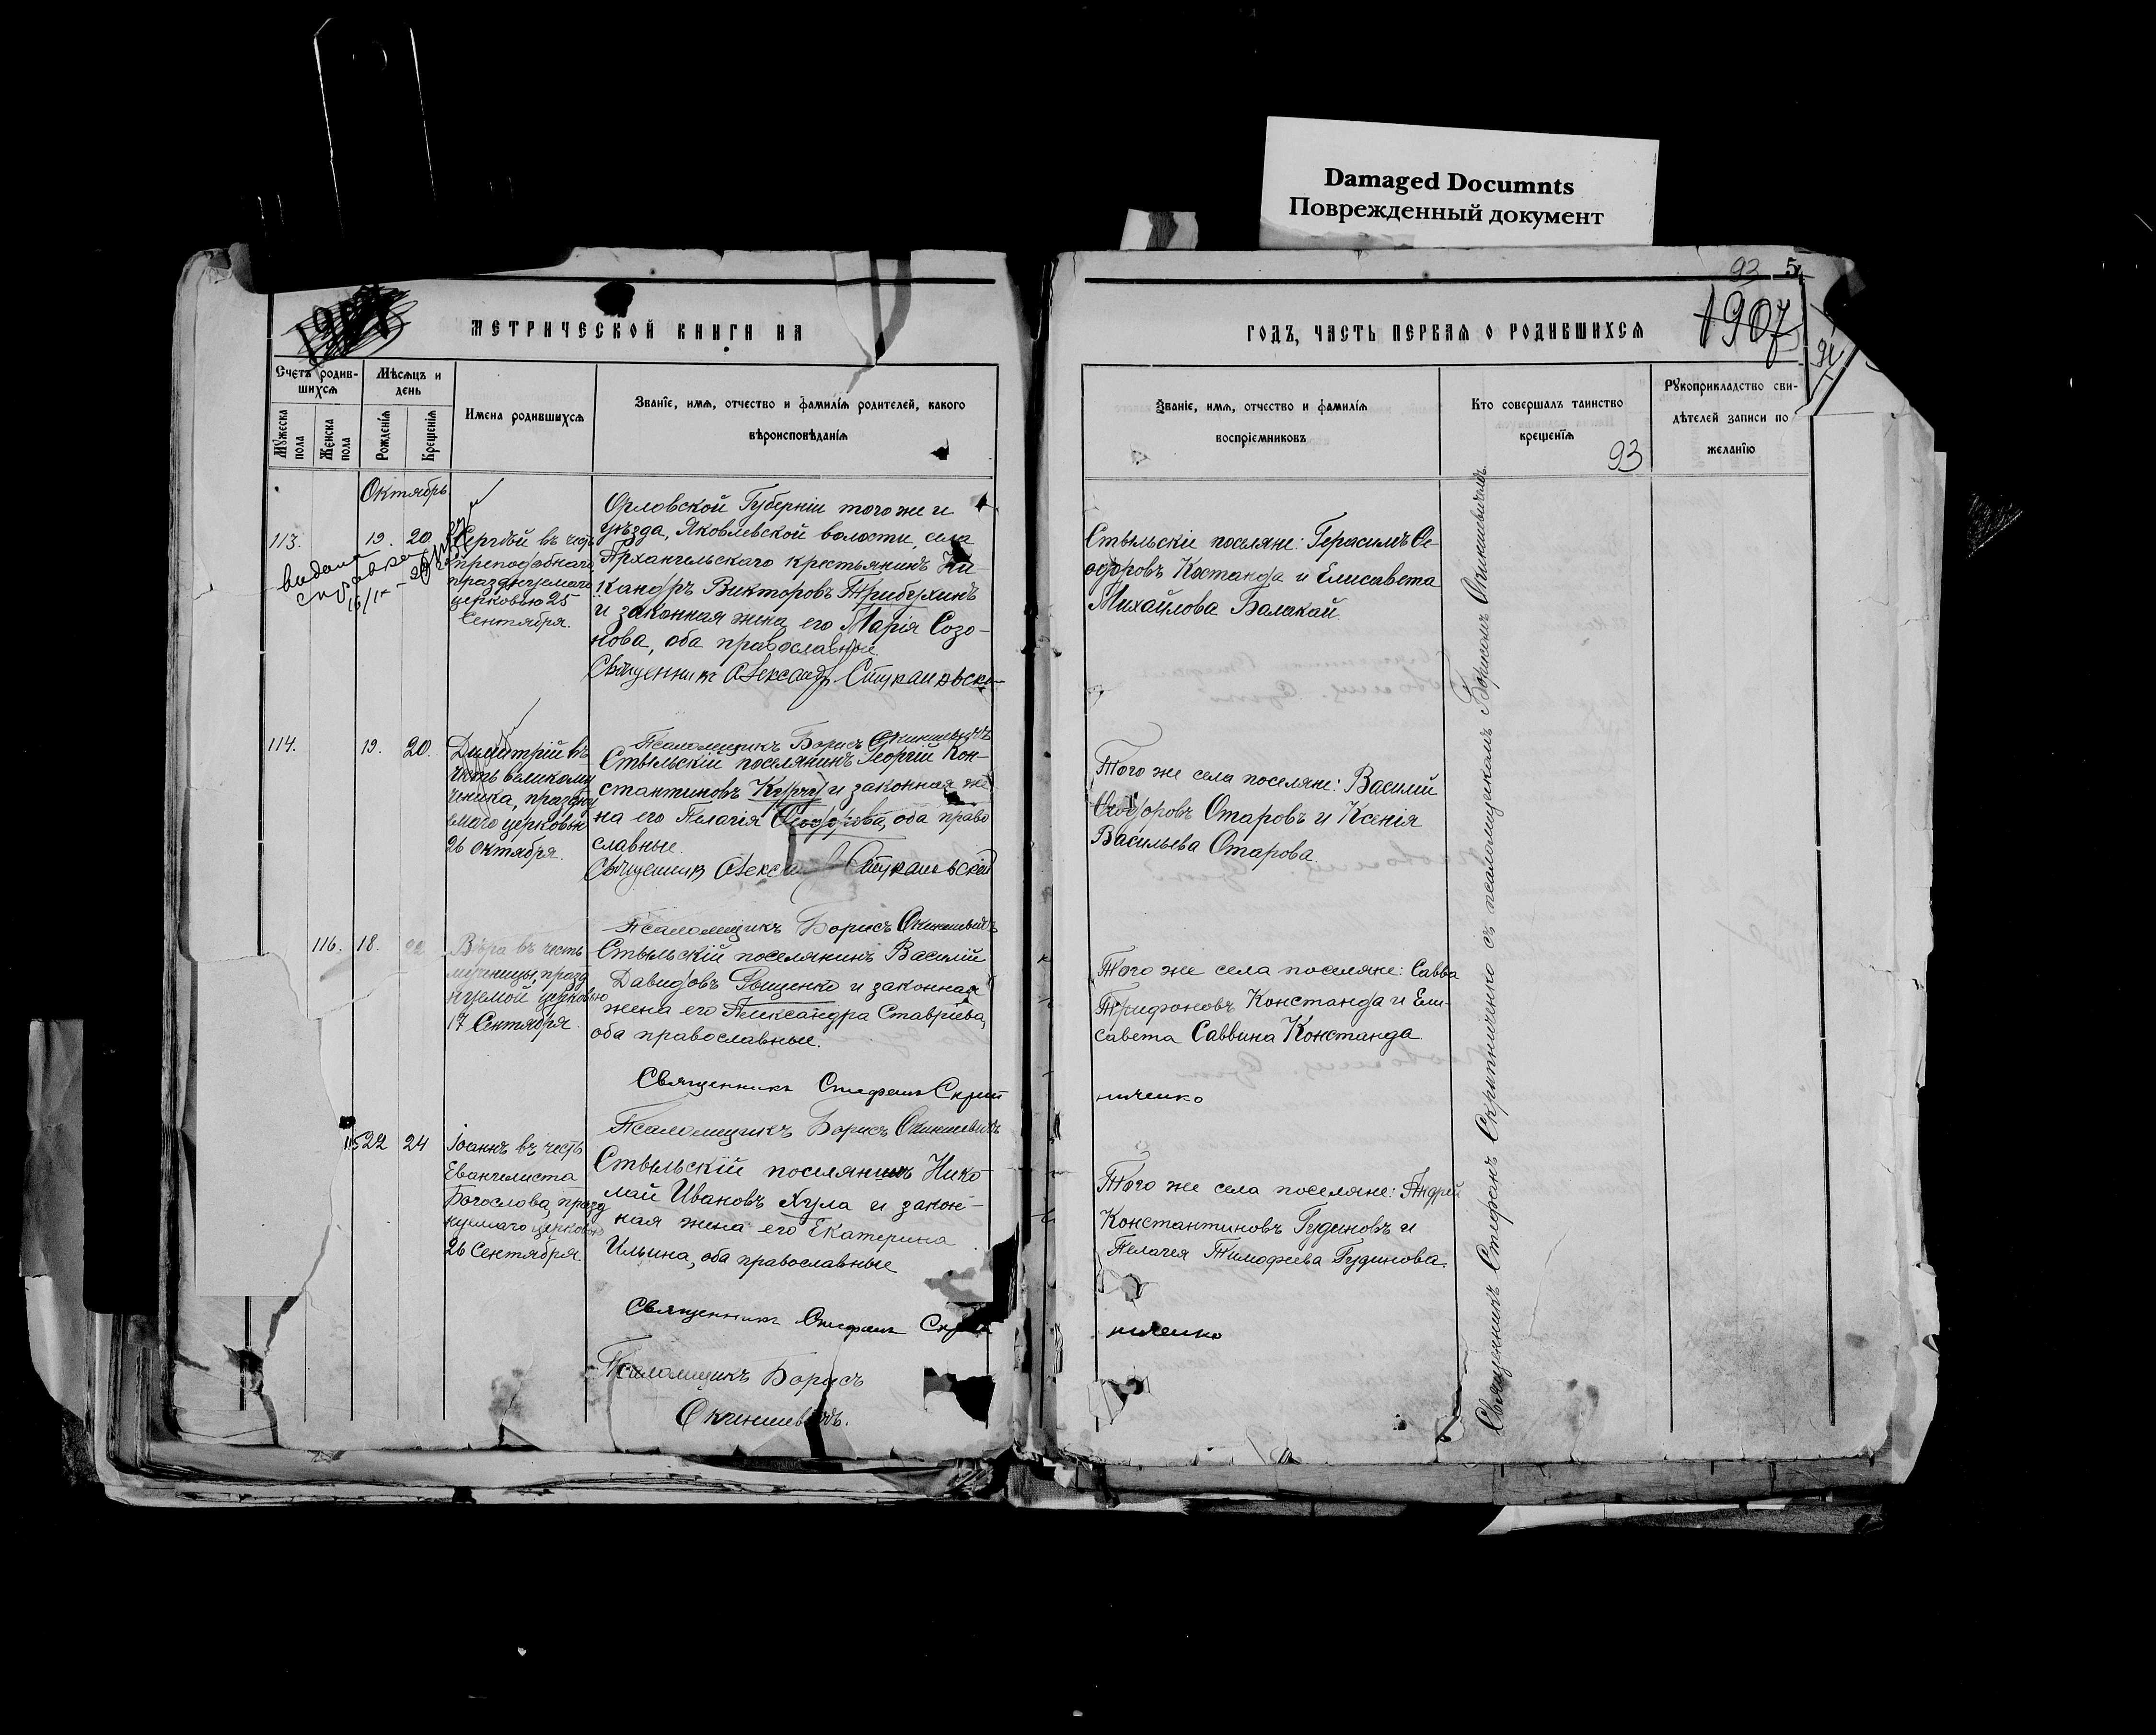 Damaged Documnts
Поврежденный документ
93 5
1907
МЕТРИЧЕСКОЙ КНИГИ НА
ГОДЪ, ЧАСТЬ ПЕРВАЯ О РОДИВШИХСЯ
1907
Счетъ родив-
шихся
Мужеска пола
Женска пола
Мѣсяцъ и
день
Рожденія
Крещенія
Имена родившихся
Званіе, имя, отчество и фамилія родителей, какого
вѣроисповѣданія
Званіе, имя, отчество и фамилія
воспріемниковъ
Кто совершалъ таинство
крещенія
93
Рукоприкладство сви-
дѣтелей записи по
желанію
Октябрь
113. 19. 20.
видана
справка
Сергѣй въ честь
преподобнаго
празднуемаго
церковью 25
Сентября.
Орловской Губерніи того же и
уѣзда, Яковлевской волости, села
Архангельскаго крестьянинъ Ни-
кандръ Викторовъ Трибухинъ
и законная жена его Марія Созо-
нова, оба православные.
Священникъ Александръ
Псаломщикъ Борисъ Окиншевичъ
Стыльскіе поселяне: Герасимъ Ѳе-
одоровъ Костанда и Елисавета
Михайлова Балакай.
114. 19. 20.
Димитрій въ
честь великому
ченика, праздну
емаго церковью
26 Октября.
Стыльскій поселянинъ Георгій Кон-
стантиновъ и законная же
на его Пелагія Ѳеодорова, оба право
славные.
Священникъ
Псаломщикъ Борисъ Окиншевичъ
Того же села поселяне: Василій
Ѳеодоровъ Отаровъ и Ксенія
Васильева Отарова.
116. 18. 22
Вѣра въ честь
мученицы, празд
нуемой церковью
17 Сентября.
Стыльскій поселянинъ Василій
Давидовъ и законная
жена его Александра Ставріева,
оба православные.
Священникъ Стефанъ Скрип
ниченко
Псаломщикъ Борисъ Окиншевичъ
Того же села поселяне: Савва
Трифоновъ Констанда и Ели-
савета Саввина Констанда.
115 22 24
Іоаннъ въ честь
Евангелиста
Богослова, празд
нуемаго церковью
26 Сентября.
Стыльскій поселянинъ Нико
лай Ивановъ Хула и закон-
ная жена его Екатерина
Ильина, оба православные
Священникъ Стефанъ Скрип
ниченко
Псаломщикъ Борисъ
Окиншевичъ.
Того же села поселяне: Андрей
Константиновъ Гудиновъ и
Пелагея Тимофеева Гудинова.
Священникъ Стефанъ Скрипниченко съ псаломщикомъ Борисомъ Окиншевичемъ.